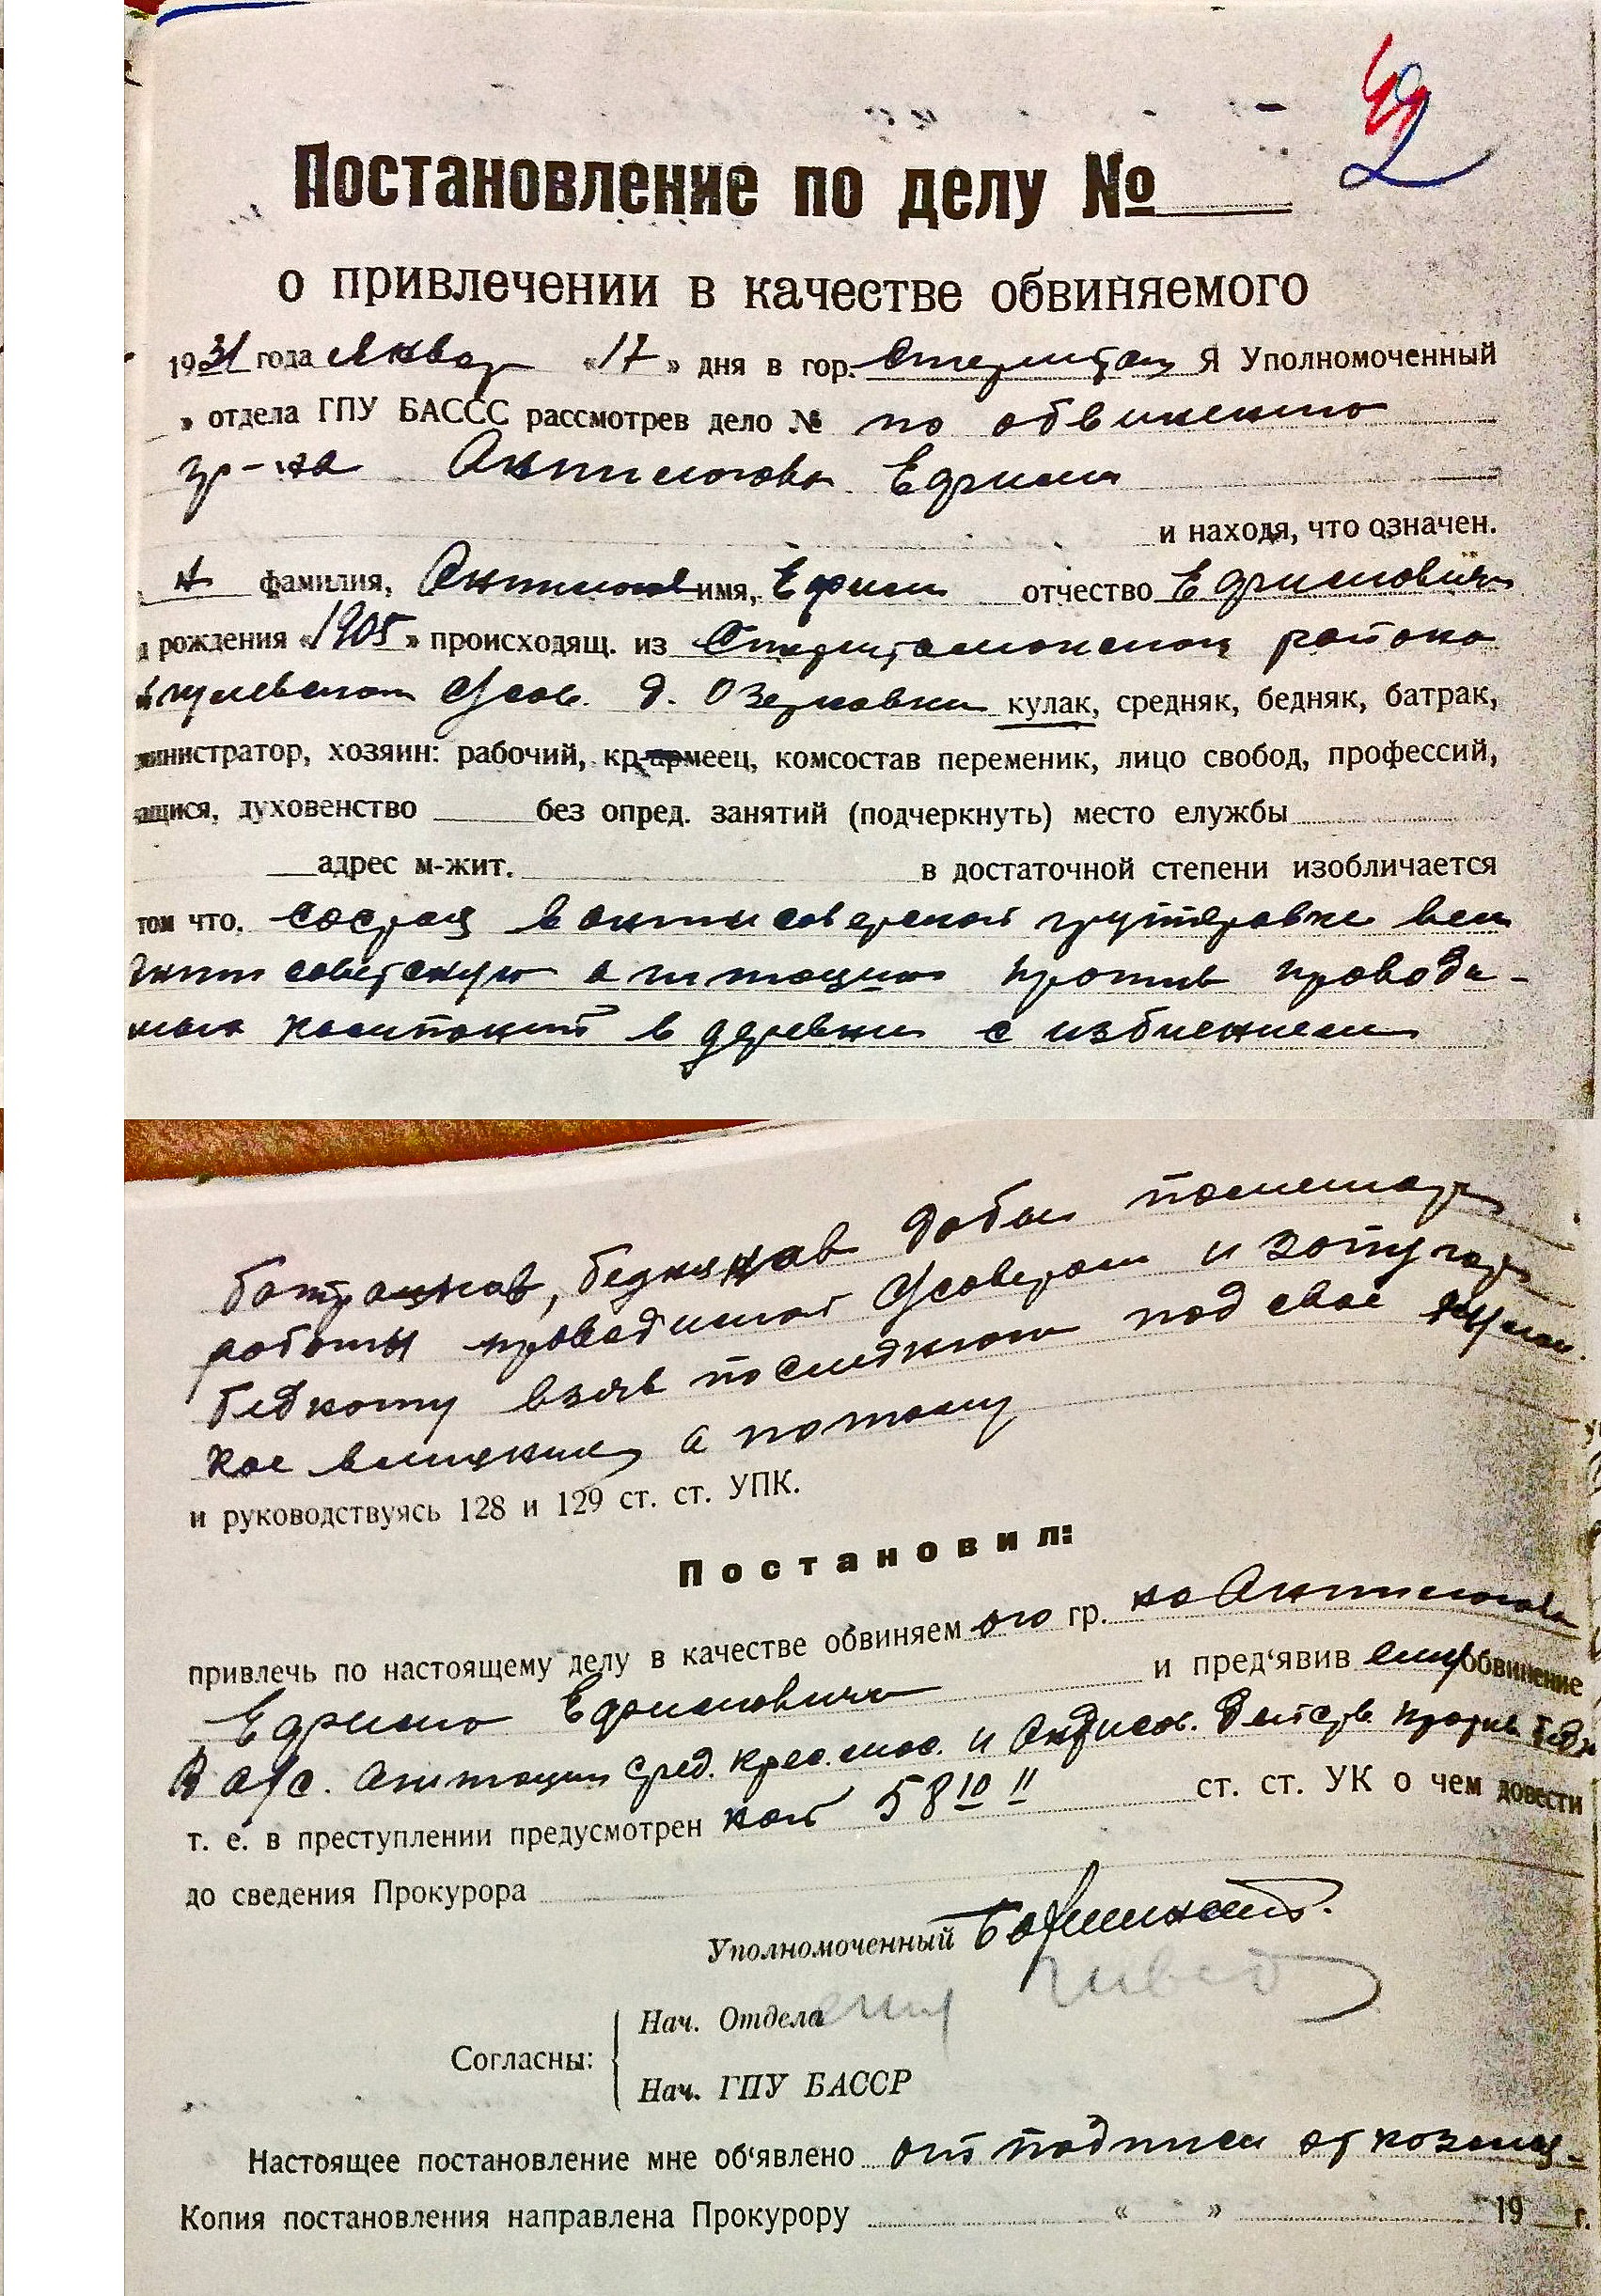 42
Постановление по делу №
о привлечении в качестве обвиняемого
1931 года Январ «17» дня в гор. Стерлитам Я Уполномоченный
» отдела ГПУ БАССС рассмотрев дело № по обвинению
гр-на Антипова Ефим
и находя, что означен.
й фамилия, Антипов имя, Ефим отчество Ефимович
рождения «1905» происходящ. из Стерлитамакского района
с/сов. д. Озерковки кулак, средняк, бедняк, батрак,
министратор, хозяин: рабочий, кр-армеец, комсостав переменик, лицо свобод, профессий,
ащися, духовенство без опред. занятий (подчеркнуть) место елужбы
адрес м-жит. в достаточной степени изобличается
том что, состоя в антисоветской группировке вел
антисоветскую агитацию против проводи-
мых кампаний в деревни с избиением
батраков, бедняков дабы помешать
работы проводимой с/советом и запугать
бедноту взяв последнюю под свое кулац.
кое влияние, а потому
и руководствуясь 128 и 129 ст. ст. УПК.
Постановил:
привлечь по настоящему делу в качестве обвиняем ого гр. на Антипова
Ефима Ефимовича и пред‘явив ему обвинение
В а/с. агитации сред. крес. мас. и Антисов. действ. против бедн
т. е. в преступлении предусмотрен ной 58 10 11 ст. ст. УК о чем довести
до сведения Прокурора
Уполномоченный
Согласны:
Нач. Отдела
Нач. ГПУ БАССР
Настоящее постановление мне об‘явлено от подписи отказался
Копия постановления направлена Прокурору « » 19 г.